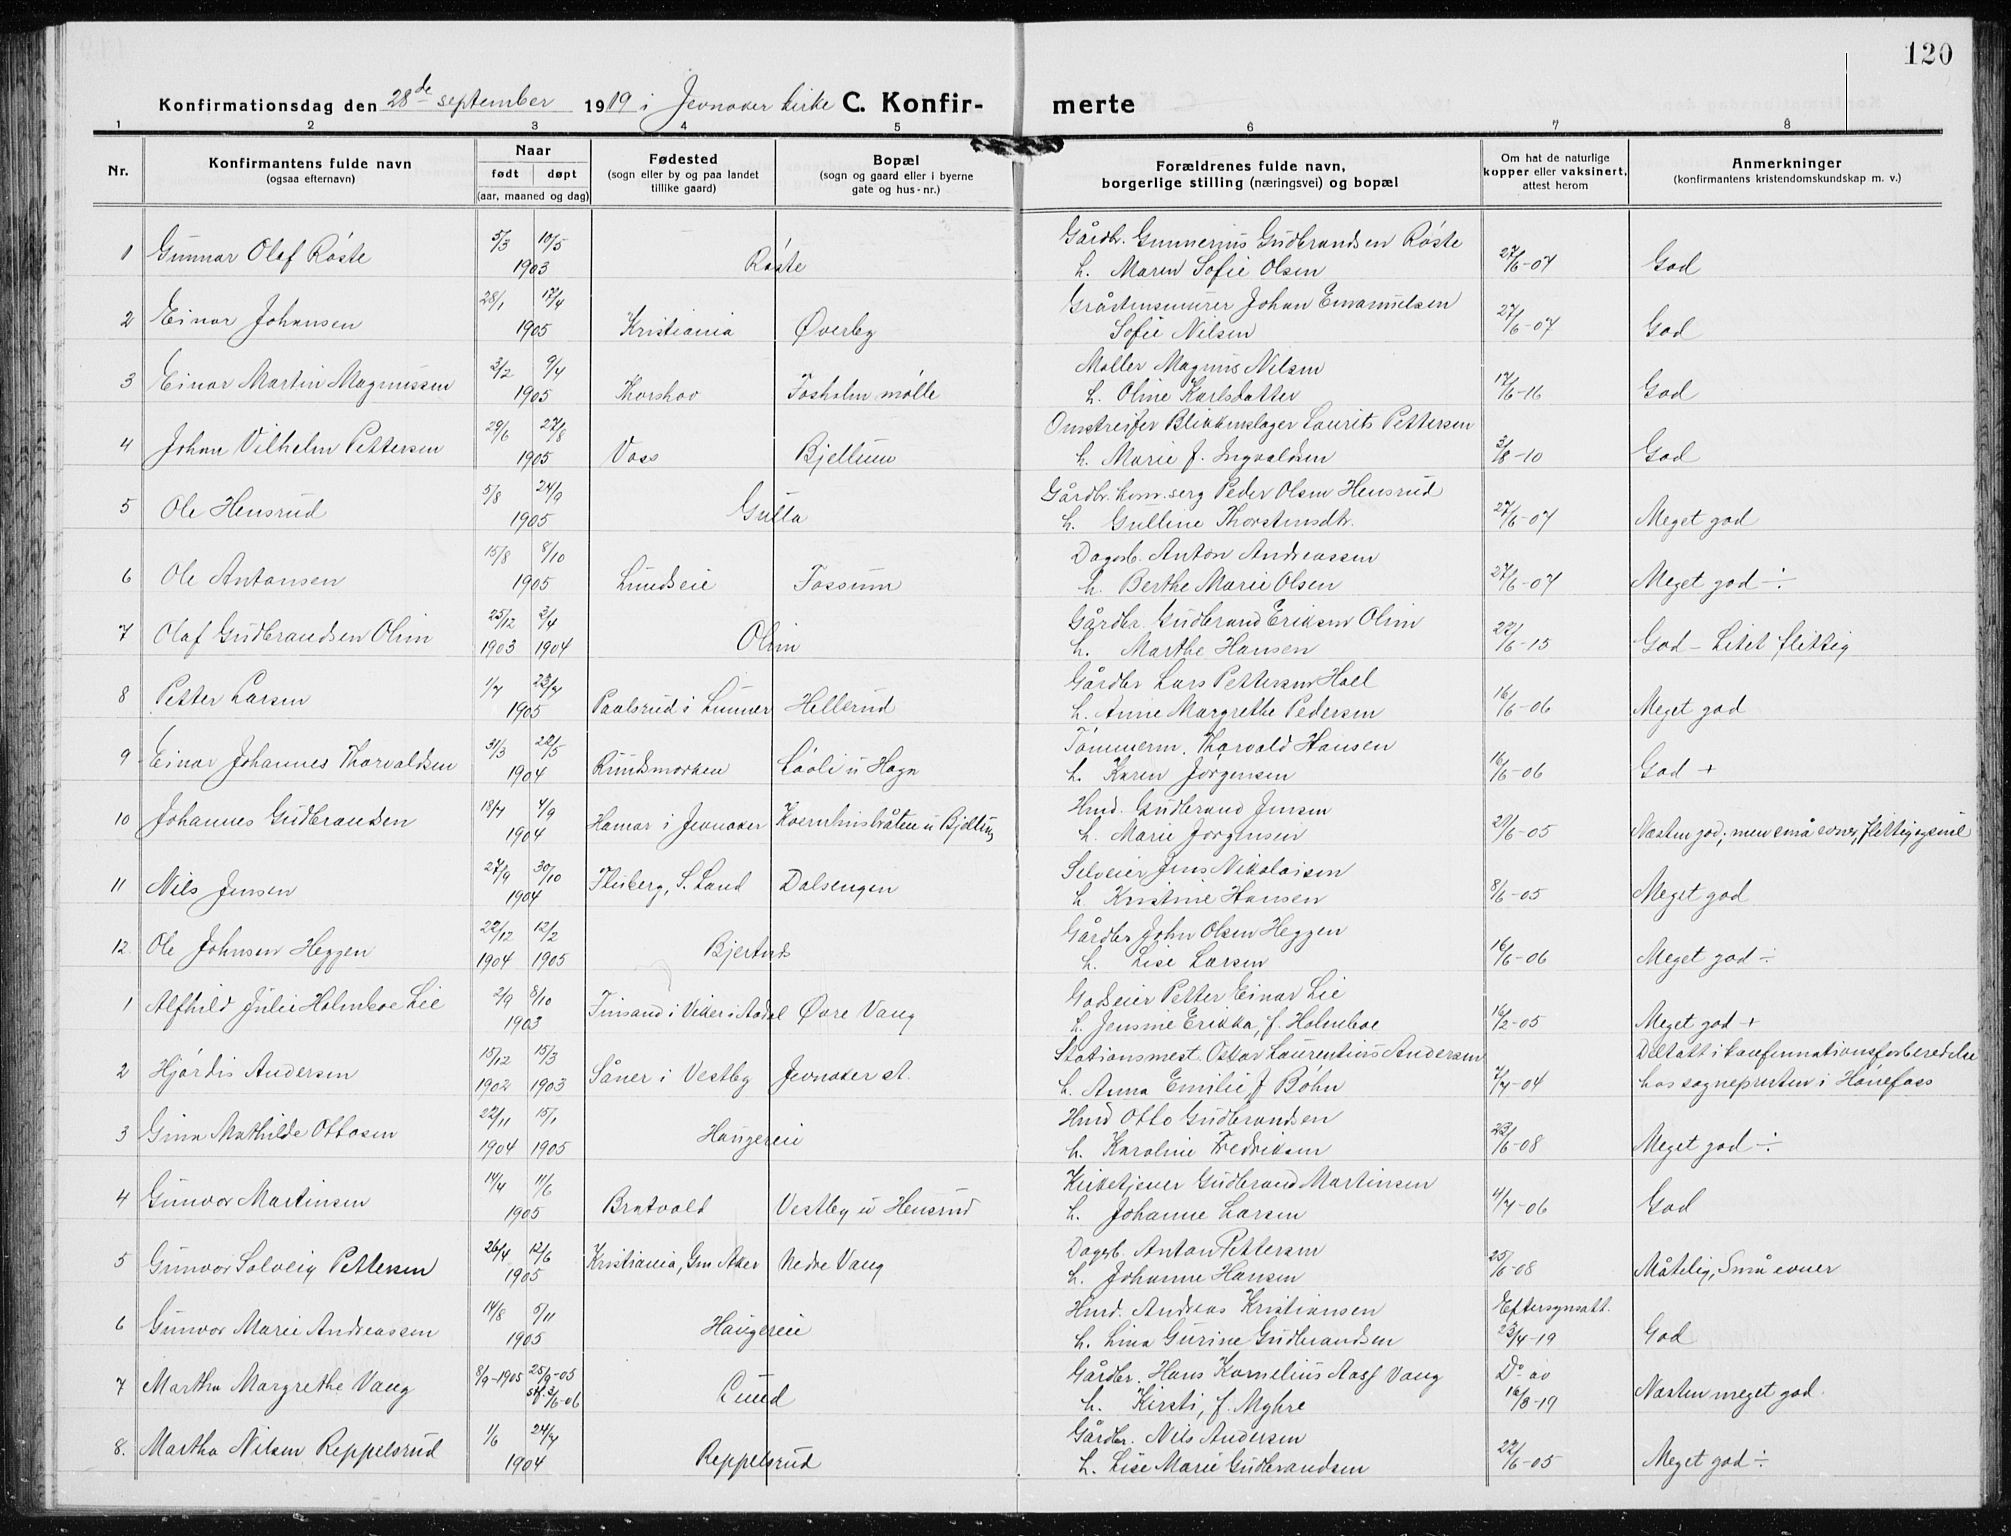 120
Konfirmationsdag den 28de september 1919 i Jevnaker kirke C. Konfirmerte
1 2 3 4 5 6 7 8
Nr.
Konfirmantens fulde navn
(ogsaa efternavn)
Naar
født døpt
(aar, maaned og dag)
Fødested
(sogn eller by og paa landet
tillike gaard)
Bopæl
(sogn og gaard eller i byerne
gate og hus-nr.)
Forældrenes fulde navn,
borgerlige stilling (næringsvei) og bopæl
Om hat de naturlige
kopper eller vaksinert,
attest herom
Anmerkninger
(konfirmantens kristendomskundskap m. v.)
1 Gunnar Olaf Røste 5/3 10/5 1903 Røste Gårdbr. Gunnerius Gudbrandsen Røste
h. Maren Sofie Olsen 27/6-07 God
2 Einar Johansen 28/1 17/4 1905 Kristiania Øverby Gråstensmurer Johan Emanuelsen
Sofie Nilsen 27/6-07 God
3 Einar Martin Magnussen 3/2 9/4 1905 Thorshov Fosholm mølle Møller Magnus Nilsen
h. Oline Karlsdatter 17/6-16 God
4 Johan Vilhelm Pettersen 29/6 27/8 1905 Voss Bjellum Omstreifer Blikkenslager Laurits Pettersen
h. Marie f. Ingvaldsen 3/8-10 God
5 Ole Hensrud 5/8 24/9 1905 Gulla Gårdbr. kom.serg Peder Olsen Hensrud
h. Gulline Thorstensdtr. 27/6-07 Meget god
6 Ole Antonsen 15/8 8/10 1905 Lundseie Fossum Dagarb. Anton Andreassen
h. Berthe Marie Olsen 27/6-07 Meget god ÷
7 Olaf Gudbrandsen Olum 25/12 1903 3/4 1904 Olum Gårdbr. Gudbrand Eriksen Olum
h. Marthe Hansen 22/6-15 God - Litet flittig
8 Petter Larsen 1/7 23/7 1905 Paalsrud i Lunner Hellerud Gårdbr Lars Pettersen Hoel
h. Anne Margrethe Pedersen 16/6-06 Meget god
9 Einar Johannes Thorvaldsen 31/3 22/5 1904 Rundsmorken Låoli u Hagn Tømmerm. Thorvald Hansen
h. Karen Jørgensen 16/6-06 God +
10 Johannes Gudbrandsen 18/7 4/9 1904 Hamar i Jevnaker Kvernhusbråten u Bjellum Husmd. Gudbrand Jensen
h. Marie Jørgensen 21/6-05 Næsten god, men små evner, flittig og snil
11 Nils Jensen 27/9 30/10 1904 Fluberg, S. Land Dalsengen Selveier Jens Nikolaisen
h. Kristine Hansen 8/6-05 Meget god
12. Ole Johnsen Heggen 22/12 1904 12/2 1905 Bjertnes Gårdbr John Olsen Heggen
h. Lise Larsen 16/6-06 Meget god ÷
1 Alfhild Julie Holmboe Lie 2/9 8/10 1903 Finsand i Viker i Aadal Øvre Vang Godseier Petter Einar Lie
h. Jensine Erikka, f. Holmboe 16/2-05 Meget god +
2 Hjørdis Andersen 15/12 1902 15/3 1903 Såner i Vestby Jevnaker st. Stationsmest. Oskar Laurentius Andersen
h. Anna Emilie f Bøhn 7/7-04 Deltatt i konfirmationsforberedelse
hos sogneprесten i Hønefoss
3 Gina Mathilde Ottosen 22/11 1904 15/1 1905 Haugereie Husmd Otto Gudbrandsen
h. Karoline Fredriksen 23/6-08 Meget god ÷
4 Gunvor Martinsen 14/4 11/6 1905 Bratvold Vestby u Hensrud Kirketjener Gudbrand Martinsen
h. Johanne Larsen 4/7-06 God
5 Gunvor Solveig Pettersen 26/4 12/6 1905 Kristiania, Gm Aker Nedre Vang Dagarb. Anton Pettersen
h. Johanne Hansen 25/6-08 Måtelig, Små evner
6 Gunvor Marie Andreassen 14/8 5/11 1905 Haugereie Husmd. Andreas Kristiansen
h. Lina Gurine Gudbrandsen Eftersynsatt. 23/4-19 God
7 Martha Margrethe Vang 8/9-1905 25/9-05 stf. 3/6-06 Lund Gårdbr. Hans Kornelius Aasf Vang
h. Kirsti, f. Myhre Do av 16/8-19 Næsten meget god.
8. Martha Nilsen Reppelsrud 1/6 24/7 1904 Reppelsrud Gårdbr. Nils Andersen
h. Lise Marie Gudbrandsen 22/6-05 Meget god ÷